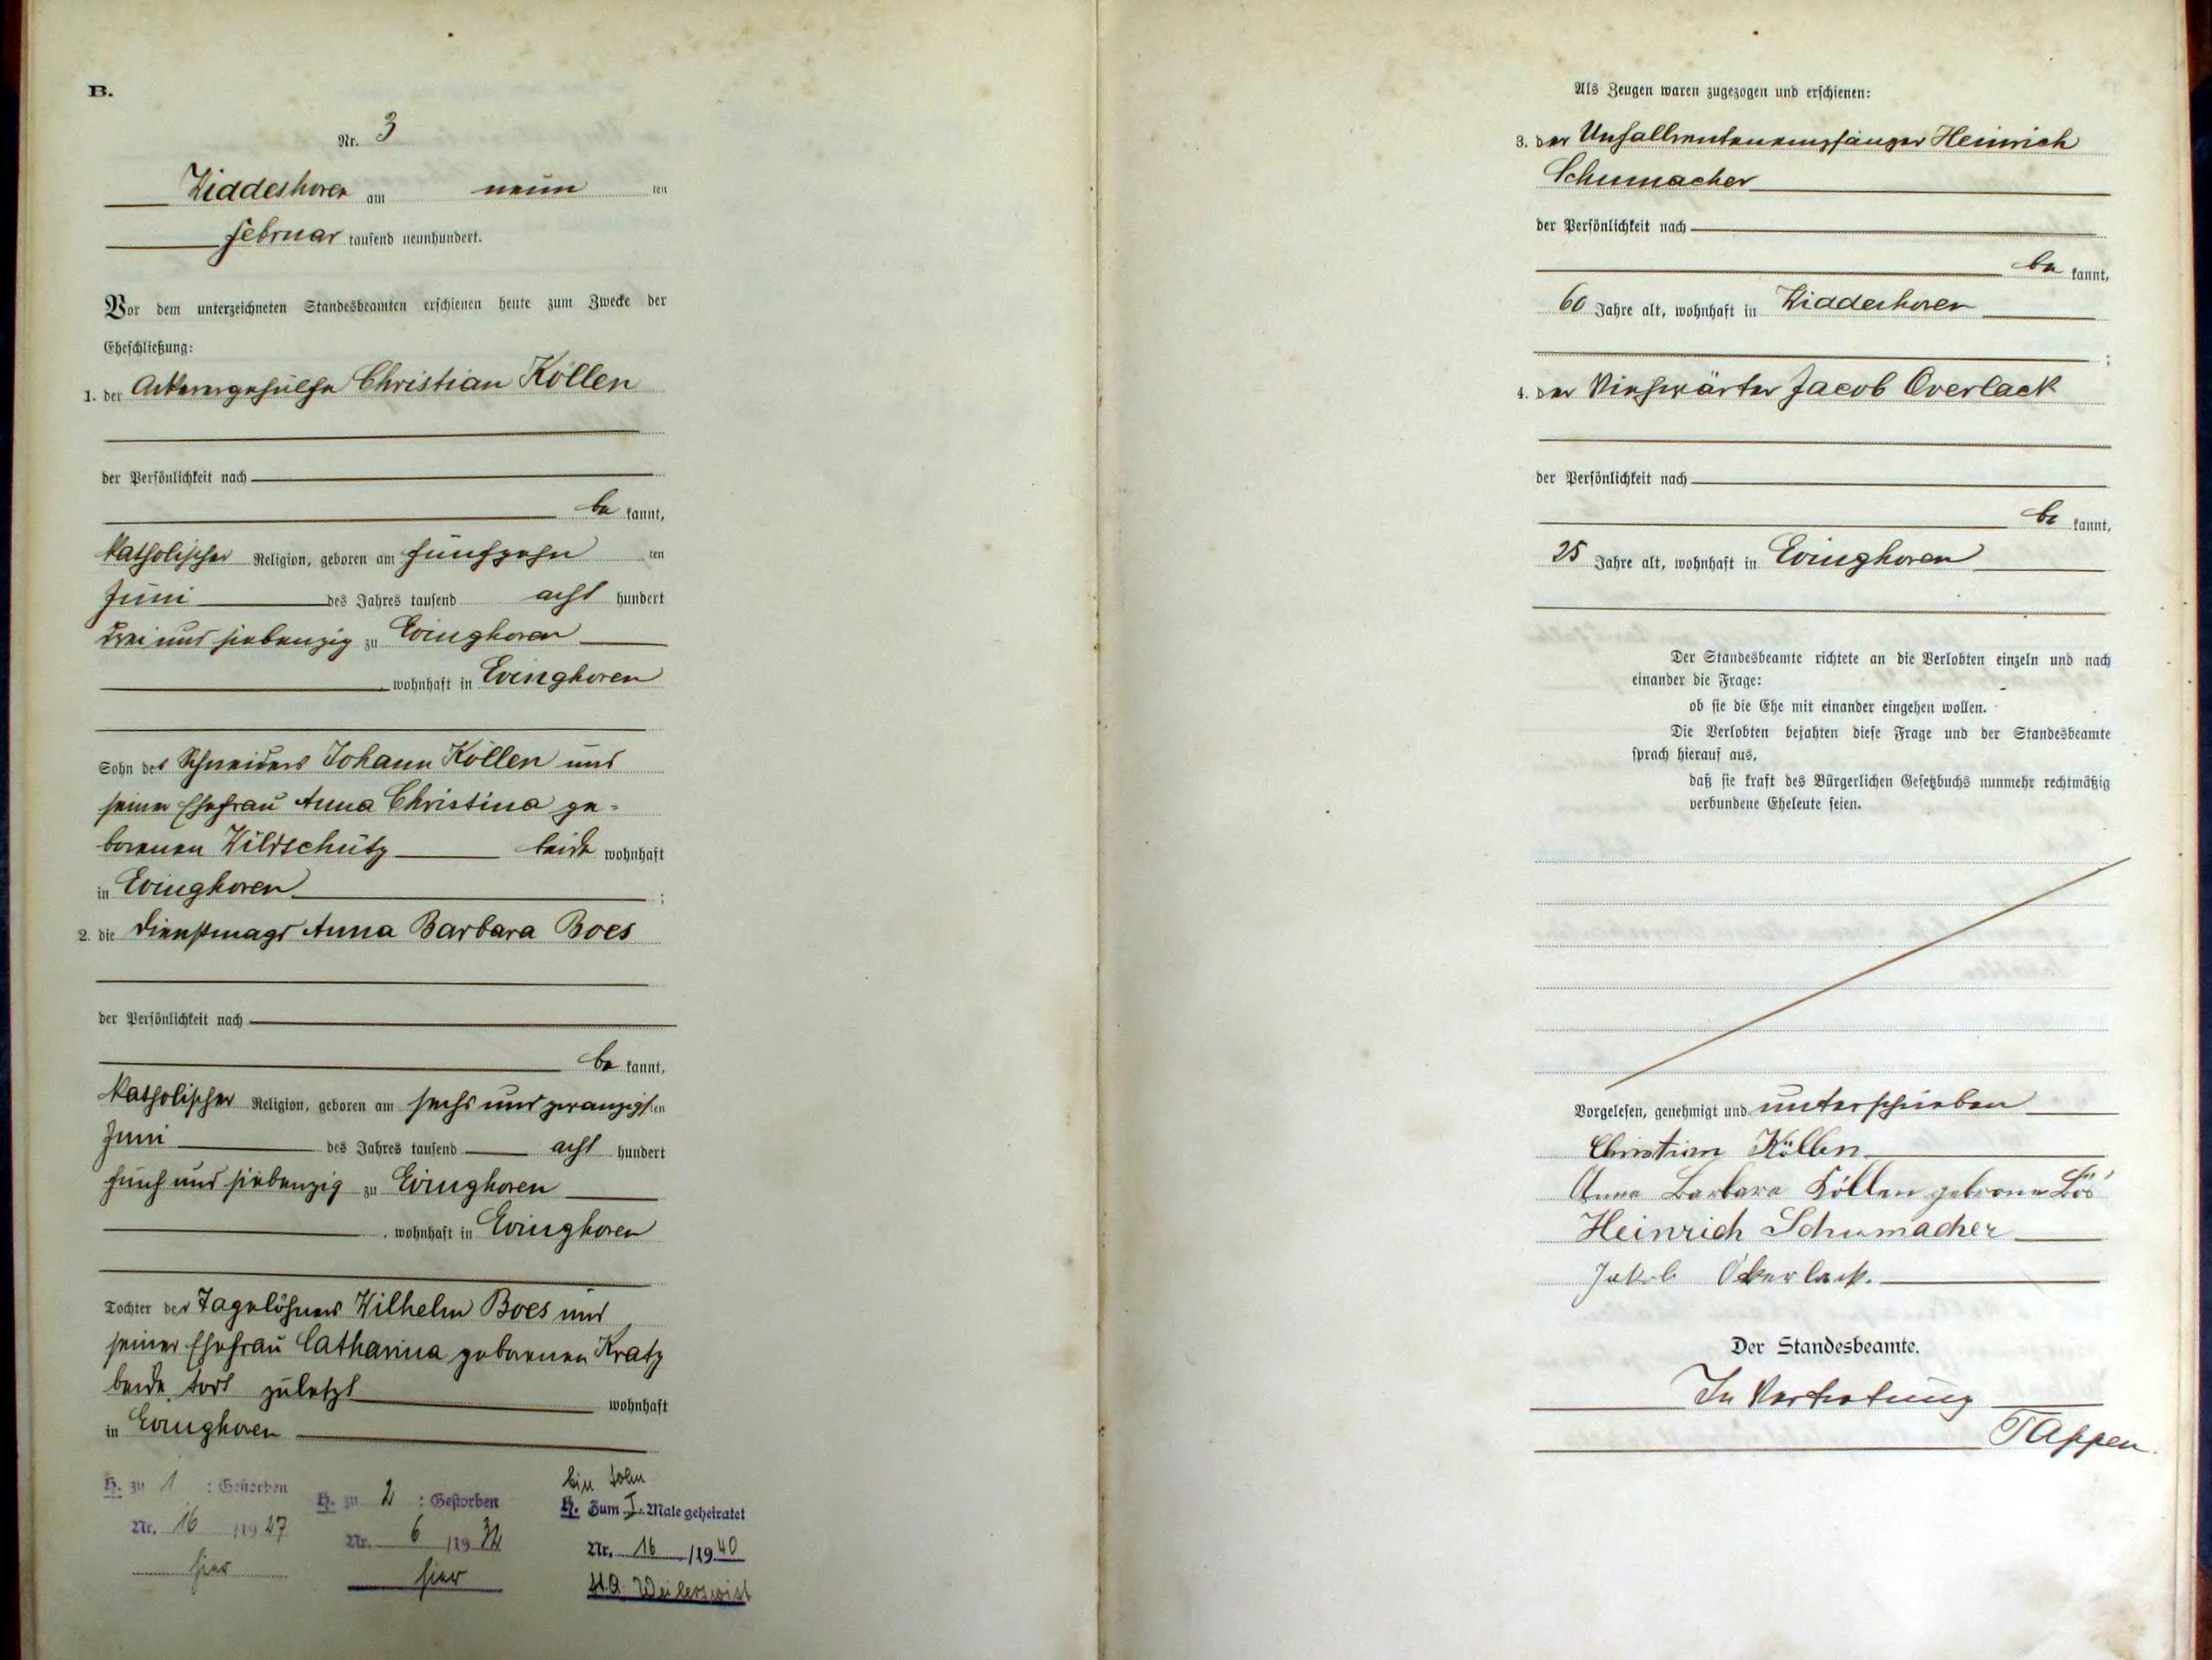 B.
Nr. 3
Widdeshoven am neun ten
Februar tausend neunhundert.
Vor dem unterzeichneten Standesbeamten erschienen heute zum Zwecke der
Eheschließung:
1. der Ackerergehülfe Christian Köllen
der Persönlichkeit nach
be kannt,
katholischer Religion, geboren am fünfzehn ten
Juni des Jahres tausend acht hundert
drei und siebenzig zu Evinghoven
wohnhaft in Evinghoven
Sohn des Schneiders Johann Köllen und
seiner Ehefrau Anna Christina ge-
borenen Wildschütz beide wohnhaft
in Evinghoven ;
2. die Dienstmagd Anna Barbara Boes
der Persönlichkeit nach
be kannt,
katholischer Religion, geboren am sechs und zwanzigsten
Juni des Jahres tausend acht hundert
fünf und siebenzig zu Evinghoven
, wohnhaft in Evinghoven
Tochter des Tagelöhners Wilhelm Boes und
seiner Ehefrau Catharina geborenen Kratz
beide todt zuletzt wohnhaft
in Evinghoven
H. zu 1 : Gestorben
Nr. 16 /1927
hier
H. zu 2 : Gestorben
Nr. 6 /1932
hier
Ein Sohn
H. Zum I. Male geheiratet
Nr. 16 /1940
St.A. Weilerswist
Als Zeugen waren zugezogen und erschienen:
3. der Unfallrentenempfänger Heinrich
Schumacher
der Persönlichkeit nach
be kannt,
60 Jahre alt, wohnhaft in Widdeshoven
;
4. der Viehwärter Jacob Overlack
der Persönlichkeit nach
be kannt,
25 Jahre alt, wohnhaft in Evinghoven
Der Standesbeamte richtete an die Verlobten einzeln und nach
einander die Frage:
ob sie die Ehe mit einander eingehen wollen.
Die Verlobten bejahten diese Frage und der Standesbeamte
sprach hierauf aus,
daß sie kraft des Bürgerlichen Gesetzbuchs nunmehr rechtmäßig
verbundene Eheleute seien.
Vorgelesen, genehmigt und unterschrieben
Christian Köllen
Anna Barbara Köllen geborene Bös
Heinrich Schumacher
Jakob Oberlack.
Der Standesbeamte.
In Vertretung
Tappen